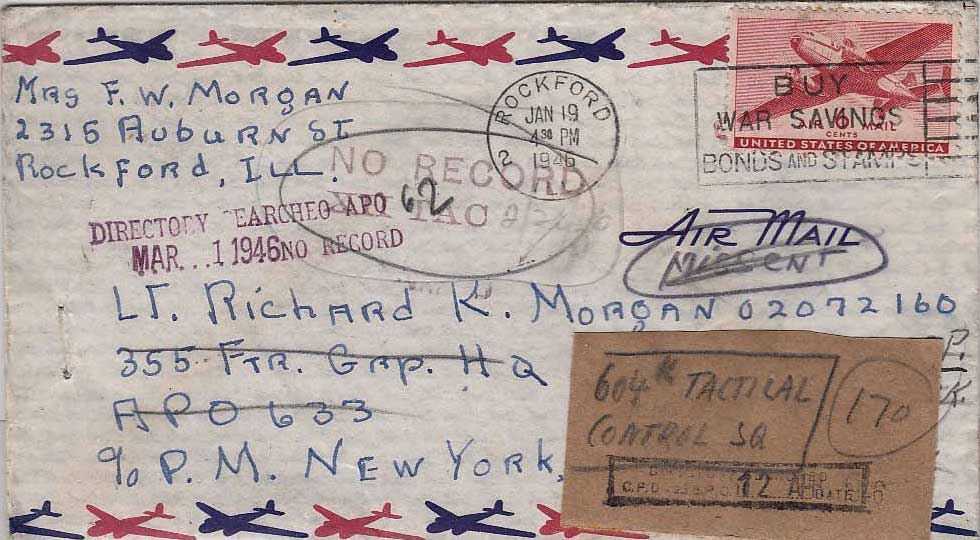 Mrs F. W. Morgan
2315 Auburn St
Rockford, Ill.
ROCKFORD
JAN 19
4 30 PM
1946
2
BUY
WAR SAVINGS
BONDS AND STAMPS
AIR MAIL
6
CENTS
UNITED STATES OF AMERICA
NO RECORD
TAC
DIRECTORY SEARCHED APO 62
MAR. . 1 1946 NO RECORD
AIR MAIL
Missent
Lt. Richard K. Morgan 02072160
355 Ftr. Grp. HQ
APO 633
c/o P. M. New York,
604th TACTICAL
CONTROL SQ
170
12 APR